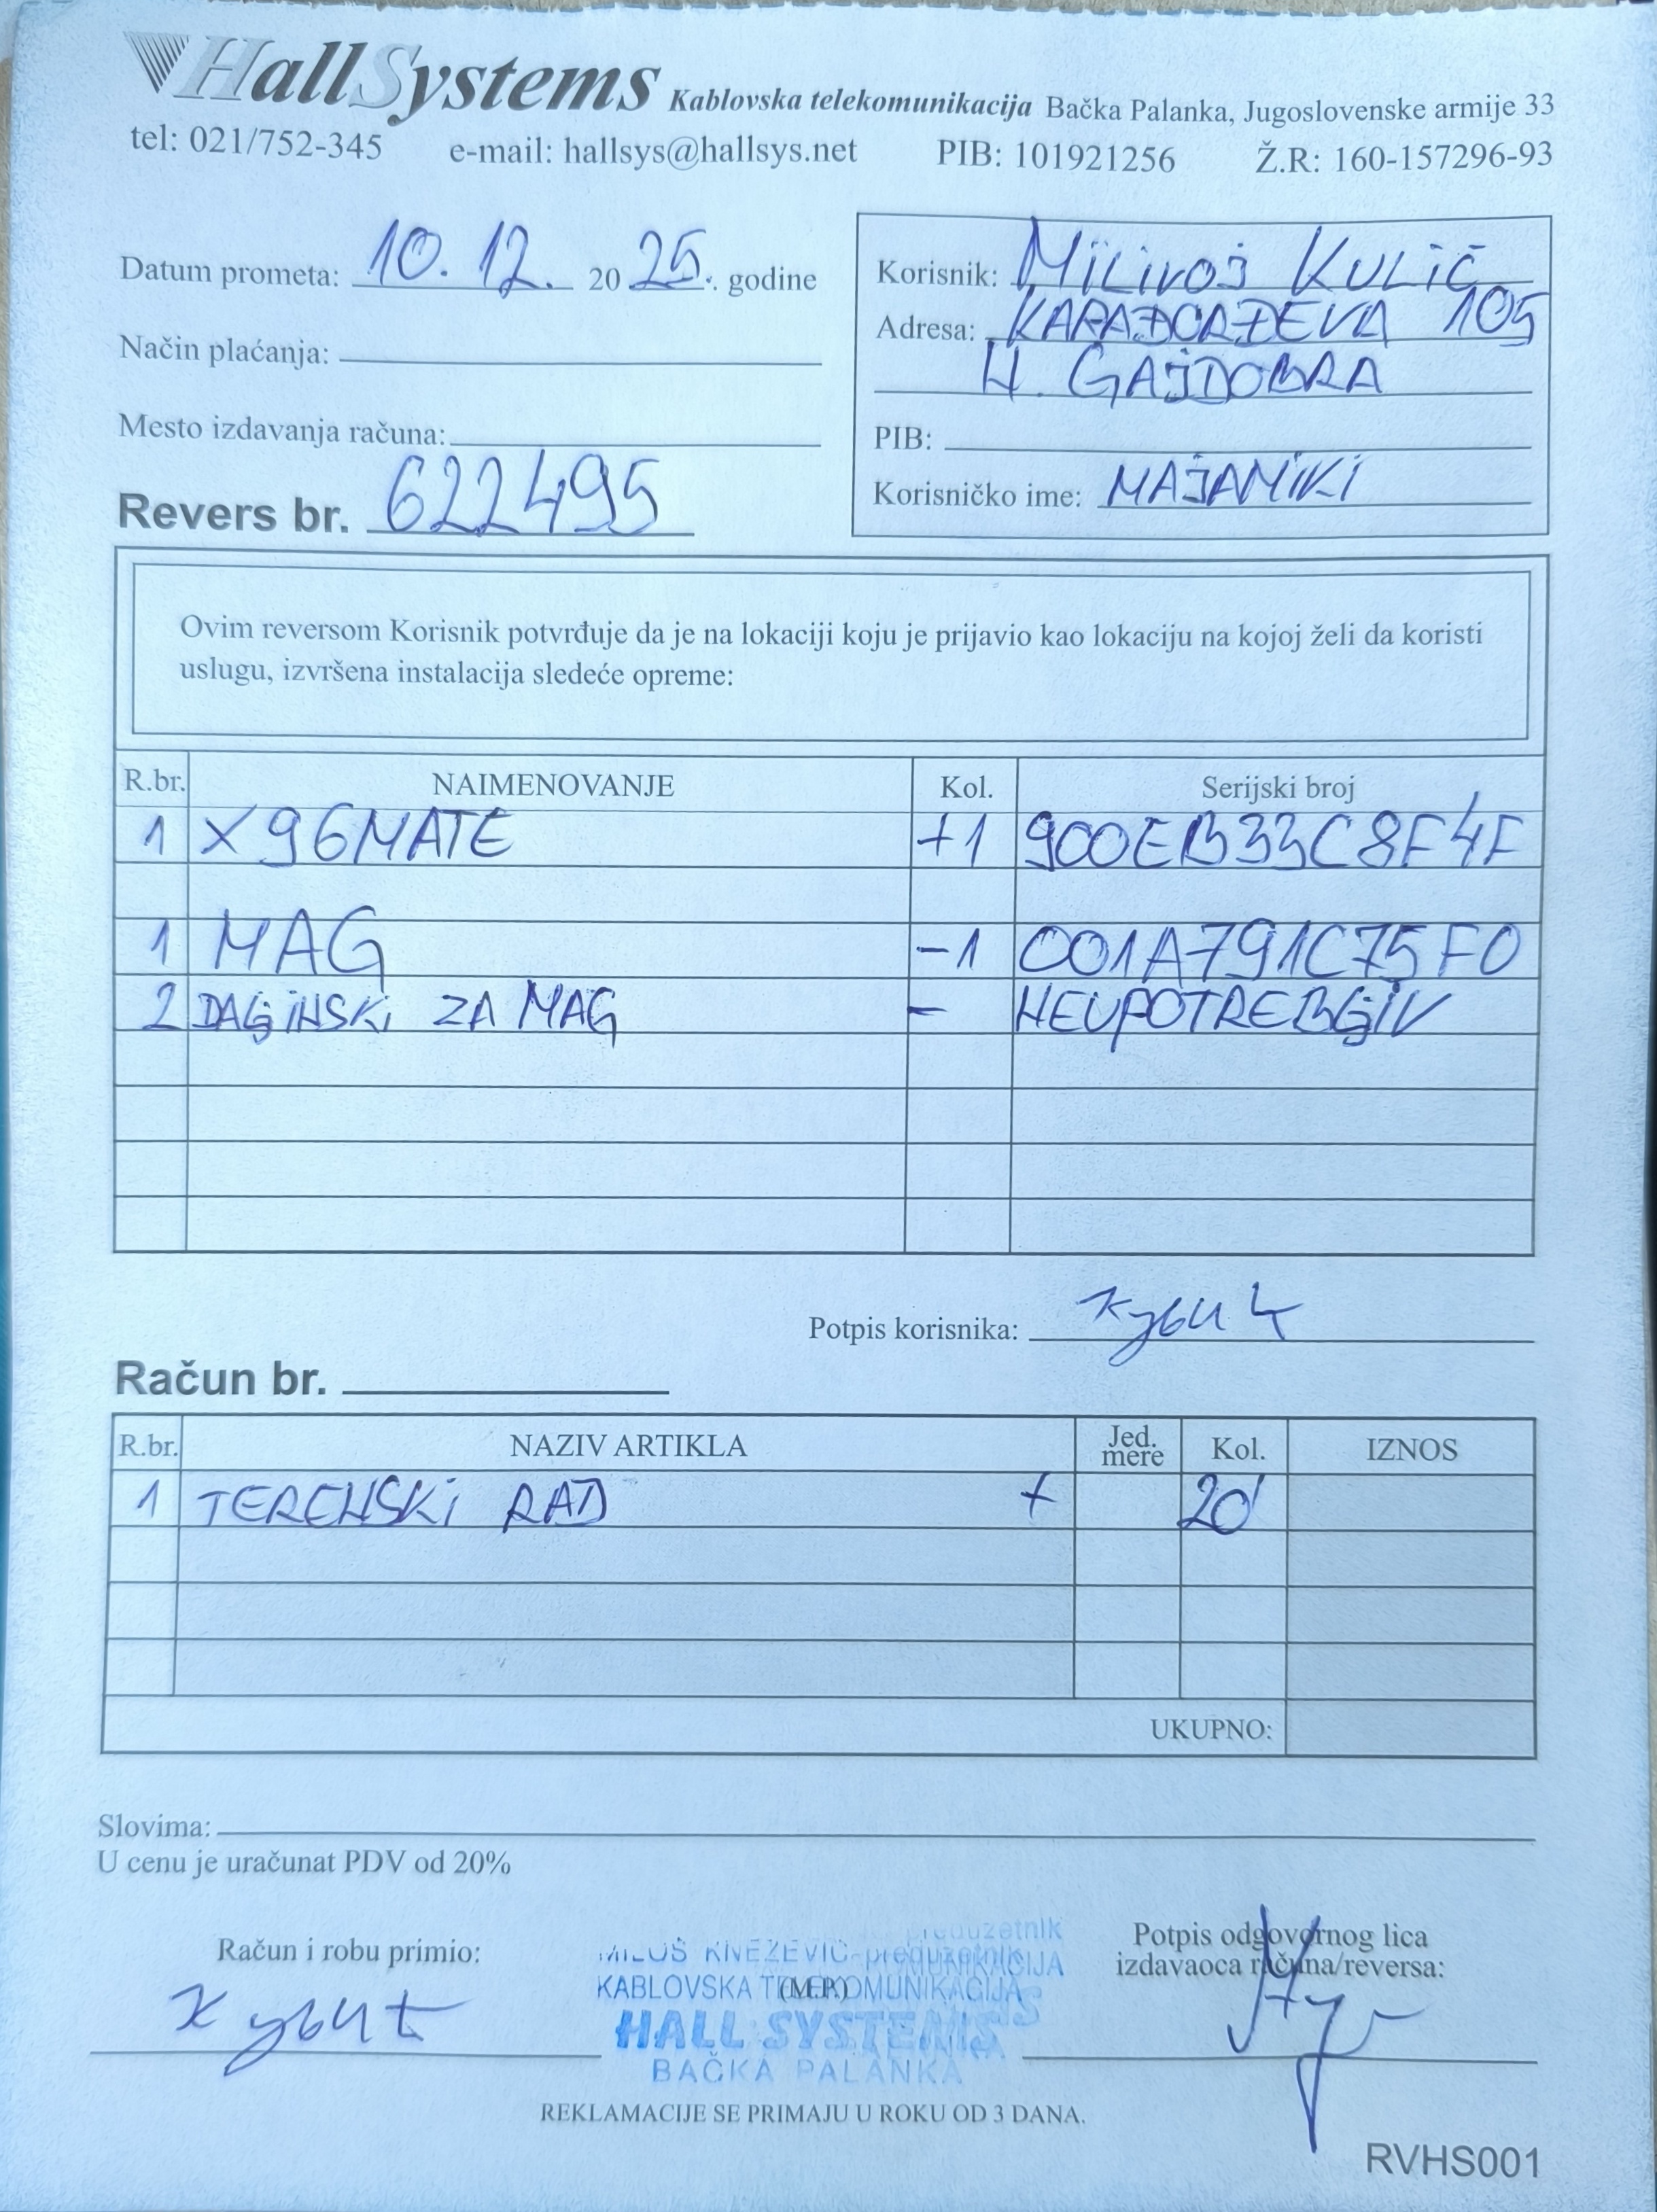 HallSystems Kablovska telekomunikacija Bačka Palanka, Jugoslovenske armije 33
tel: 021/752-345 e-mail: hallsys@hallsys.net PIB: 101921256 Ž.R: 160-157296-93
Datum prometa: 10. 12. 20 25. godine
Način plaćanja:
Mesto izdavanja računa:
Revers br. 622495
Korisnik: MiLivoj KULiĆ
Adresa: KARAĐORĐEVA 105
N. GAJDOBRA
PIB:
Korisničko ime: MAJAMiKi
Ovim reversom Korisnik potvrđuje da je na lokaciji koju je prijavio kao lokaciju na kojoj želi da koristi
uslugu, izvršena instalacija sledeće opreme:
R.br. NAIMENOVANJE Kol. Serijski broj
1 X96MATE +1 900EB33C8F4F
1 MAG -1 001A791C75F0
2 DALjiNSKi ZA MAG - NEUPOTREBLjiV
Potpis korisnika:
Račun br.
R.br. NAZIV ARTIKLA Jed. mere Kol. IZNOS
1 TERENSKi RAD + 20'
UKUPNO:
Slovima:
U cenu je uračunat PDV od 20%
Račun i robu primio:
MILOŠ KNEŽEVIĆ-preduzetnik
KABLOVSKA TELEKOMUNIKACIJA
(M.P.)
HALL SYSTEMS
BAČKA PALANKA
Potpis odgovornog lica
izdavaoca računa/reversa:
REKLAMACIJE SE PRIMAJU U ROKU OD 3 DANA.
RVHS001